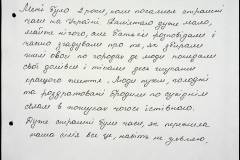 Мені було 2 роки, коли почалися страшні
часи на Україні. Пам'ятаю дуже мало,
майже нічого, але батьки розповідали і
часто згадували про те, як збирали
по городах де люди покидали
свої домівки і тікали десь шукати
кращого життя. Люди пухлі, голодні
та роздратовані бродили по сусідніх
селах в пошуках чогось їстівного.
Дуже страшні були часи, як пережила
наша сім'я все це, навіть не уявляю.